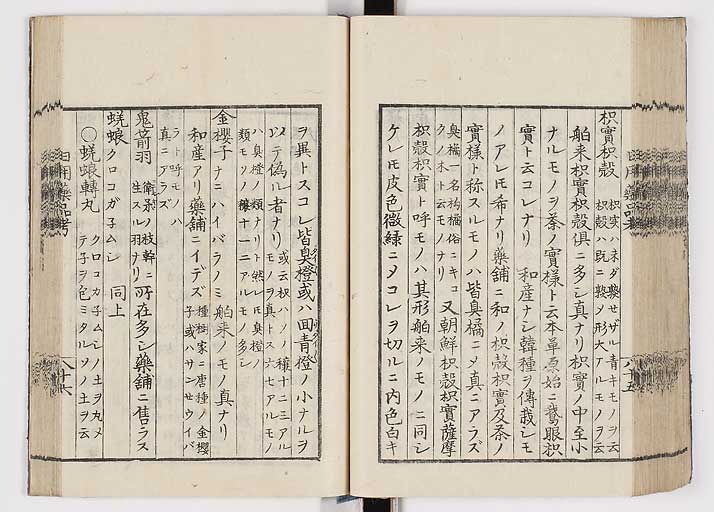 枳實枳殻 枳実ハネダ𤍠セザル青キモノヲ云
枳殻ハ既ニ𤍠ノ形大アルモノヲ云
舶来枳實枳殻俱ニ多シ真ナリ枳實ノ中至小
ナルモノヲ茶ノ實様ト云本草原始ニ鵞眼枳
實ト云コレナリ 和産ナシ韓種ヲ傳栽シモ
ノアレ𪜈希ナリ藥舗ニ和ノ枳殻枳實及茶ノ
實様ト称スルモノハ皆臭橘ニ〆真ニアラズ
臭橘一名枸橘俗ニキコ
クノ木ト云モノナリ 又朝鮮枳殻枳實薩摩
枳殻枳實ト呼モノハ其形舶来ノモノニ同シ
ケレ𪜈皮色微緑ニ〆コレヲ切ルニ内色白キ
ヲ異トスコレ皆臭橙或ハ回青橙ノ小ナルヲ
以テ偽ル者ナリ 或云枳ハソノ穣十二三アル
モノヲ真トス六七アルモノ
ハ臭橙ノ類ナリト然レ𪜈臭橙ノ
類モソノ穣十一二アルモノ多シ
金櫻子 ナニハイバラノミ 舶来ノモノ真ナリ
和産アリ藥舗ニイデズ 種樹家ニ唐種ノ金櫻
子或ハサンセウイバ
ラト呼モノハ
真ニアラズ
鬼箭羽 衛矛ノ枝幹ニ
生スル羽ナリ 所在多シ藥舗ニ售ラス
蜣蜋 クロコガ子ムシ 同上
〇蜣蜋轉丸 クロコカ子ムシノ土ヲ丸メ
テ子ヲ包ミタルソノ土ヲ云
日用藥品考
八十五
八十六